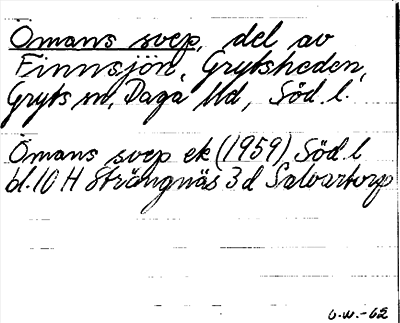 Ömans svep, del av
Finnsjön, Grytsheden,
Gryts sn, Daga hd, Söd. l.
Ömans svep ek (1959) Söd l
bl. 10 H Strängnäs 3 d Salvartorp
G.W.-62